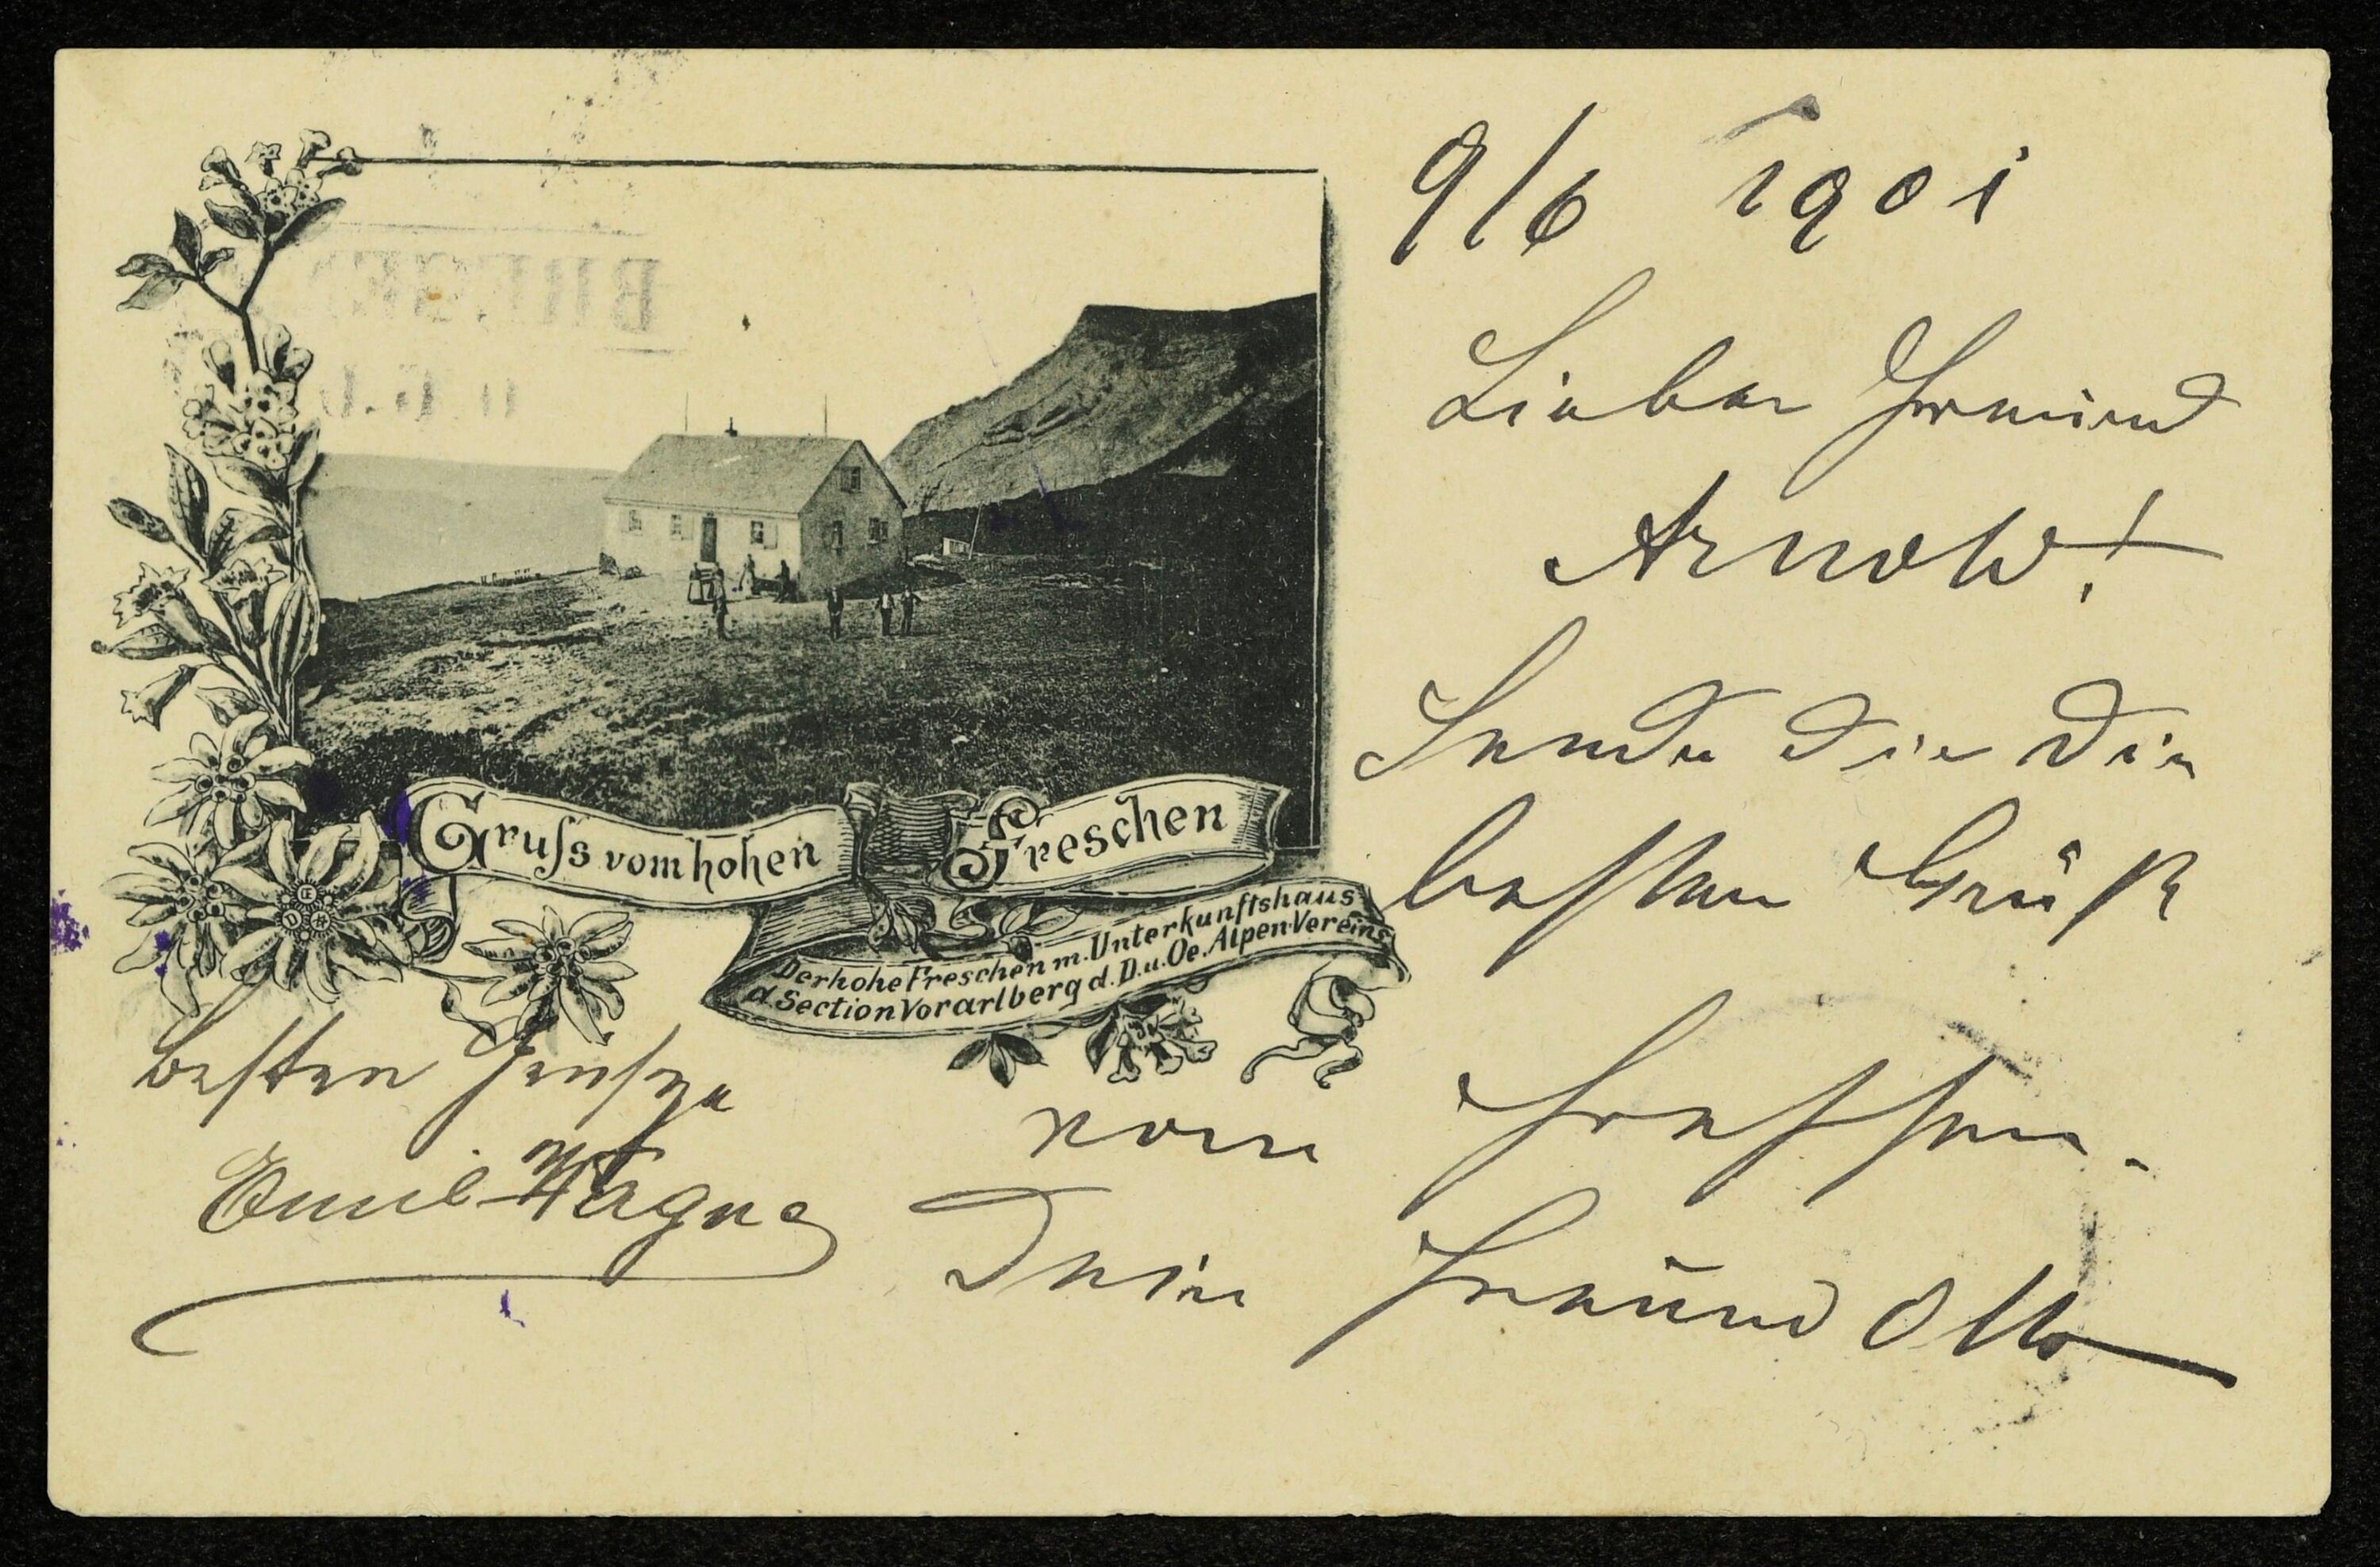 9/6 1901
Lieber Freund
Arnold!
Sende die die
besten Grüße
vom Freschen.
Dein Freund Otto
Gruſs vom hohen Freschen
Der hohe Freschen m. Unterkunftshaus
d. Section Vorarlberg d. D. u. Oe. Alpen Vereins
besten Grüsse
Emil Wagner